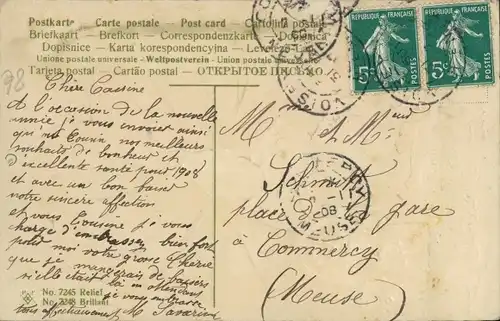 Postkarte — Carte postale — Post card — Cartolina postale
Briefkaart — Brefkort — Correspondenzkarte — Dopisnica
Dopisnice — Karta korespondencyjna — Levelező-Lap
Unione postale universale — Weltpostverein — Union postale universelle
Tarjeta postal — Cartão postal — ОТКРЫТОЕ ПИСЬМО
78
RÉPUBLIQUE FRANÇAISE
5c
POSTES
RÉPUBLIQUE FRANÇAISE
5c
POSTES
Chère Cousine
A l'occasion de la nouvelle
année je vous envoie ainsi
qu'à Cousin nos meilleurs
souhaits de bonheur et
d'excellente santé pour 1908
et avec un bon baiser
notre sincère affection
et vous Cousine je vous
charge d'embrasser bien fort
pour moi votre grosse Chérie
que je mangerais de baisers
si elle était là en attendant
je vous embrasse
tous affectueusement
Mr et Mme
Schmitt
place de gare
à Commercy
(Meuse)
MEUSE
No. 7245 Relief
No. 7248 Brillant